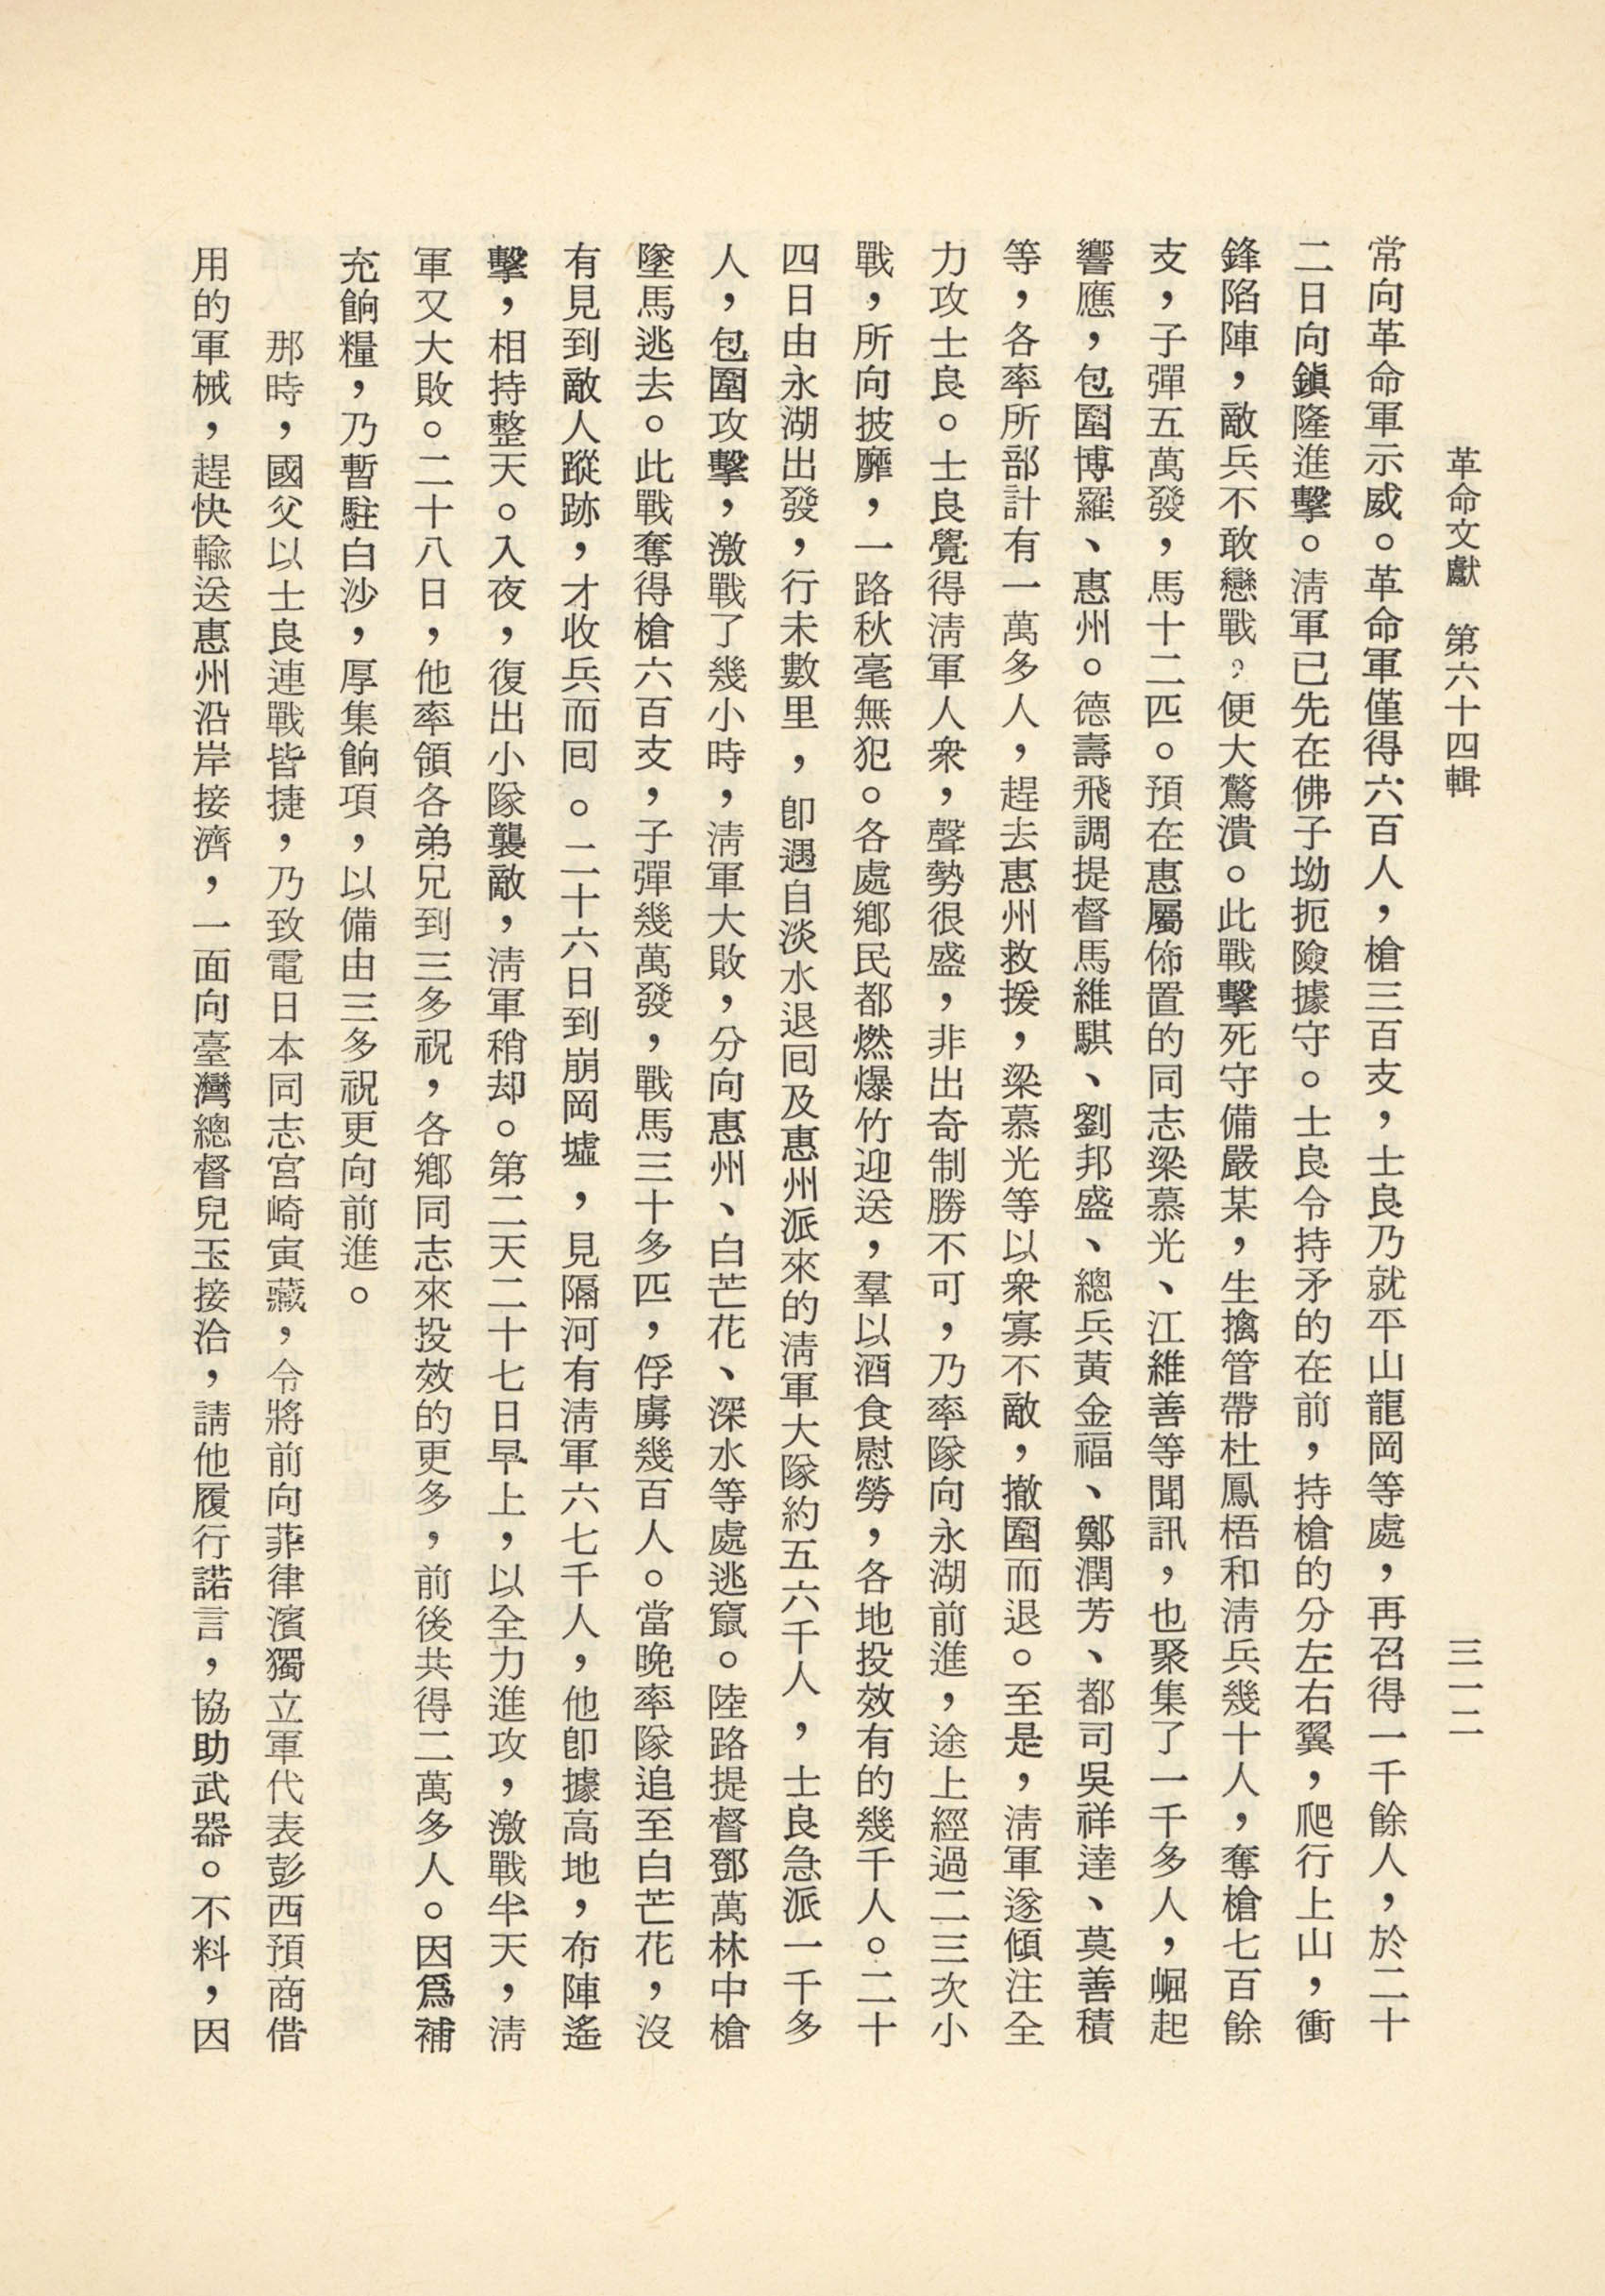 革命文獻　第六十四輯
三一二
常向革命軍示威。革命軍僅得六百人，槍三百支，士良乃就平山龍岡等處，再召得一千餘人，於二十
二日向鎮隆進擊。淸軍已先在佛子坳扼險據守。士良令持矛的在前，持槍的分左右翼，爬行上山，衝
鋒陷陣，敵兵不敢戀戰？便大驚潰。此戰擊死守備嚴某，生擒管帶杜鳳梧和淸兵幾十人，奪槍七百餘
支，子彈五萬發，馬十二匹。預在惠屬佈置的同志梁慕光、江維善等聞訊，也聚集了一千多人，崛起
響應，包圍博羅、惠州。德壽飛調提督馬維騏、劉邦盛、總兵黃金福、鄭潤芳、都司吳祥達、莫善積
等，各率所部計有一萬多人，趕去惠州救援，梁慕光等以衆寡不敵，撤圍而退。至是，淸軍遂傾注全
力攻士良。士良覺得淸軍人衆，聲勢很盛，非出奇制勝不可，乃率隊向永湖前進，途上經過二三次小
戰，所向披靡，一路秋毫無犯。各處鄉民都燃爆竹迎送，羣以酒食慰勞，各地投效有的幾千人。二十
四日由永湖出發，行未數里，卽遇自淡水退囘及惠州派來的淸軍大隊約五六千人，士良急派一千多
人，包圍攻擊，激戰了幾小時，淸軍大敗，分向惠州、白芒花、深水等處逃竄。陸路提督鄧萬林中槍
墜馬逃去。此戰奪得槍六百支，子彈幾萬發，戰馬三十多匹，俘虜幾百人。當晚率隊追至白芒花，沒
有見到敵人蹤跡，才收兵而囘。二十六日到崩岡墟，見隔河有淸軍六七千人，他卽據高地，布陣遙
擊，相持整天。入夜，復出小隊襲敵，淸軍稍却。第二天二十七日早上，以全力進攻，激戰半天，淸
軍又大敗。二十八日，他率領各弟兄到三多祝，各鄉同志來投效的更多，前後共得二萬多人。因爲補
充餉糧，乃暫駐白沙，厚集餉項，以備由三多祝更向前進。
那時，國父以士良連戰皆捷，乃致電日本同志宮崎寅藏，令將前向菲律濱獨立軍代表彭西預商借
用的軍械，趕快輸送惠州沿岸接濟，一面向臺灣總督兒玉接洽，請他履行諾言，協助武器。不料，因